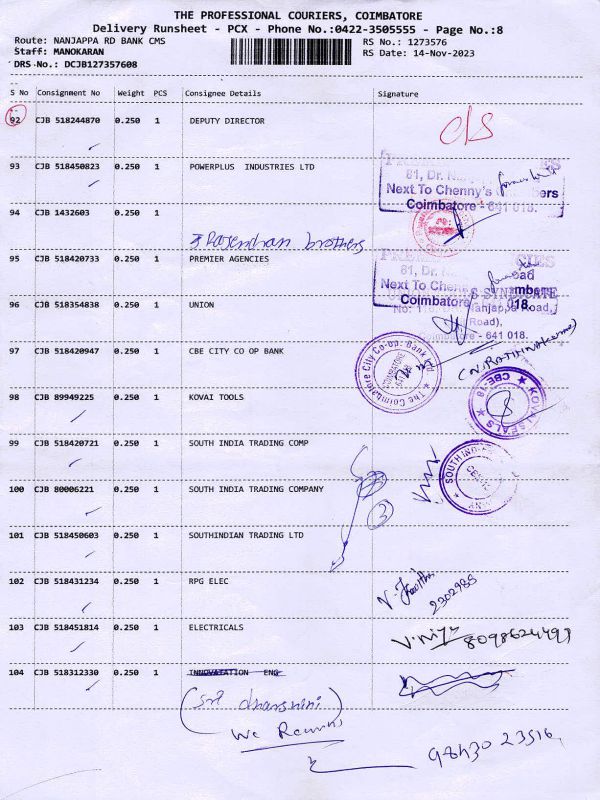 THE PROFESSIONAL COURIERS, COIMBATORE
Delivery Runsheet - PCX - Phone No.:0422-3505555 - Page No.:8
Route: NANJAPPA RD BANK CMS RS No.: 1273576
Staff: MANOKARAN RS Date: 14-Nov-2023
DRS No.: DCJB127357608
S No Consignment No Weight PCS Consignee Details Signature
92 CJB 518244870 0.250 1 DEPUTY DIRECTOR
93 CJB 518450823 0.250 1 POWERPLUS INDUSTRIES LTD
81, Dr.
Next To Chenny's
Coimbatore - 641 018.
94 CJB 1432603 0.250 1
Rajendran brothers
95 CJB 518420733 0.250 1 PREMIER AGENCIES
81, Dr.
Next To
Coimbatore
96 CJB 518354838 0.250 1 UNION
Nanjappa Road,
Road),
Coimbatore - 641 018.
97 CJB 518420947 0.250 1 CBE CITY CO OP BANK
The Coimbatore City Co-op: Bank Ltd
98 CJB 89949225 0.250 1 KOVAI TOOLS
KOVAI SEALS CBE-18
99 CJB 518420721 0.250 1 SOUTH INDIA TRADING COMP
100 CJB 80006221 0.250 1 SOUTH INDIA TRADING COMPANY
3
101 CJB 518450603 0.250 1 SOUTHINDIAN TRADING LTD
102 CJB 518431234 0.250 1 RPG ELEC
103 CJB 518451814 0.250 1 ELECTRICALS
104 CJB 518312330 0.250 1 INNOVATATION ENG
(Sri dharshini)
We